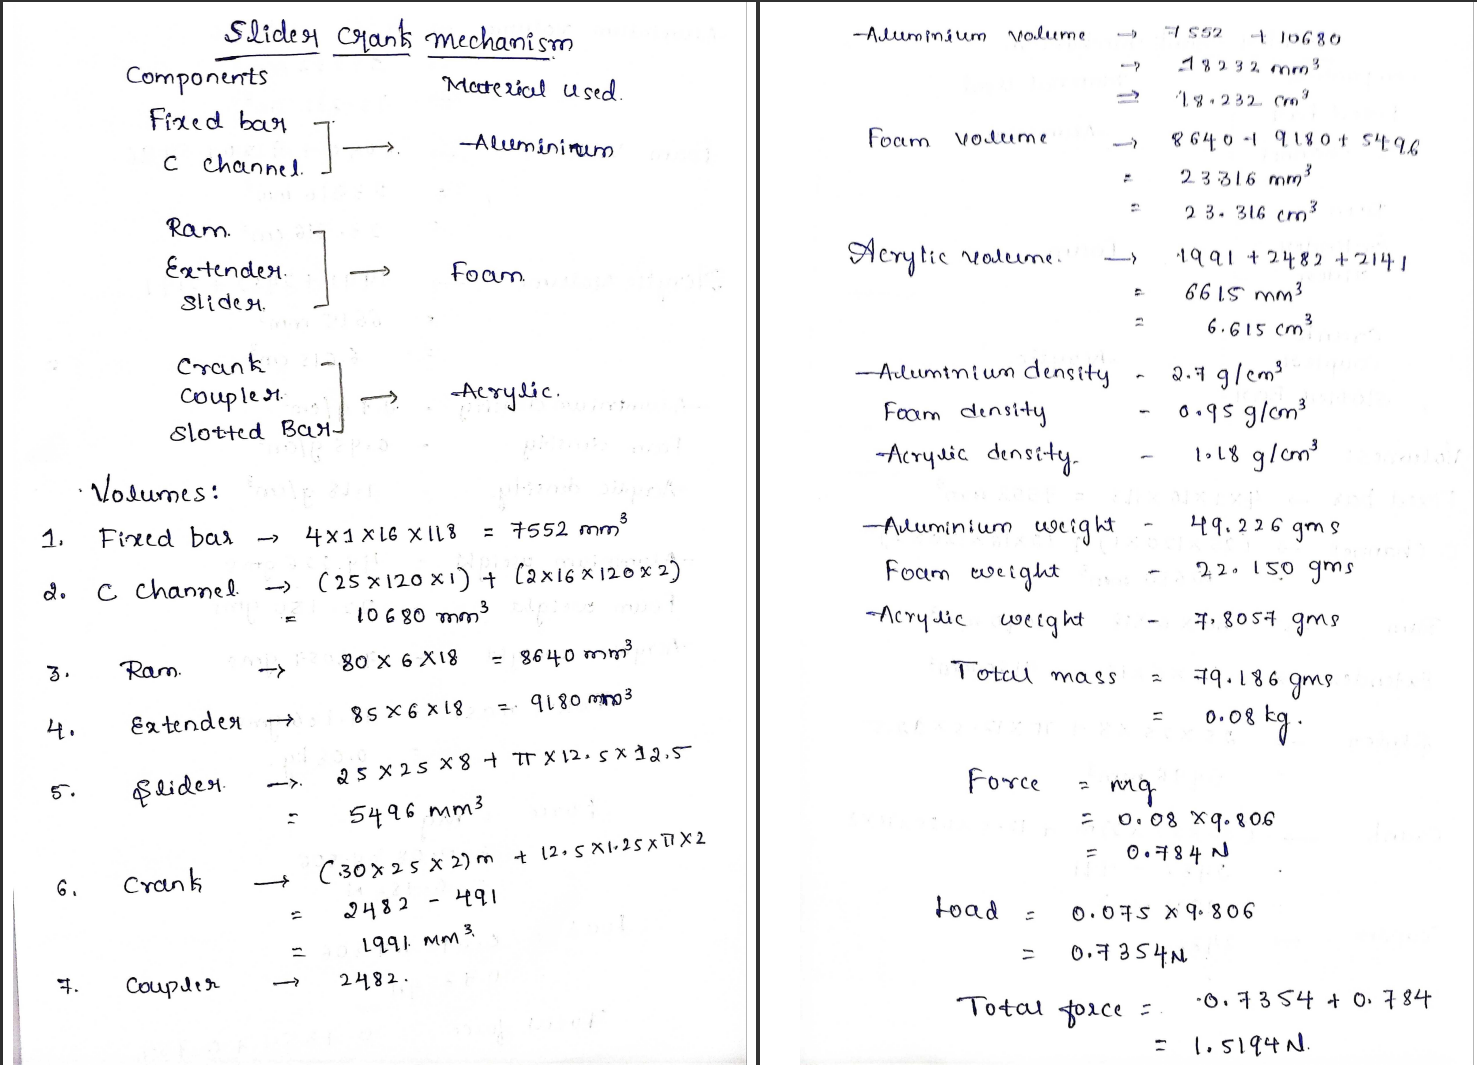 Slider crank mechanism
Components Material used.
Fixed bar
C channel. → Aluminium
Ram.
Extender. → Foam
Slider.
Crank
Coupler. → Acrylic.
Slotted Bar
Volumes:
1. Fixed bar → 4×1×16×118 = 7552 mm³
2. C channel → (25×120×1) + (2×16×120×2)
= 10680 mm³
3. Ram. → 80×6×18 = 8640 mm³
4. Extender → 85×6×18 = 9180 mm³
5. Slider. → 25×25×8 + π×12.5×12.5
= 5496 mm³
6. Crank → (30×25×2)m + 12.5×1.25×π×2
= 2482 - 491
= 1991 mm³
7. Coupler → 2482.
Aluminium volume → 7552 + 10680
→ 18232 mm³
⇒ 18.232 cm³
Foam volume → 8640 + 9180 + 5496
= 23316 mm³
= 23.316 cm³
Acrylic volume. → 1991 + 2482 + 2141
= 6615 mm³
= 6.615 cm³
Aluminium density - 2.7 g/cm³
Foam density - 0.95 g/cm³
Acrylic density - 1.18 g/cm³
Aluminium weight - 49.226 gms
Foam weight - 22.150 gms
Acrylic weight - 7.8057 gms
Total mass = 79.186 gms
= 0.08 kg.
Force = mg
= 0.08 × 9.806
= 0.784 N
Load = 0.075 × 9.806
= 0.7354 N
Total force = 0.7354 + 0.784
= 1.5194 N.